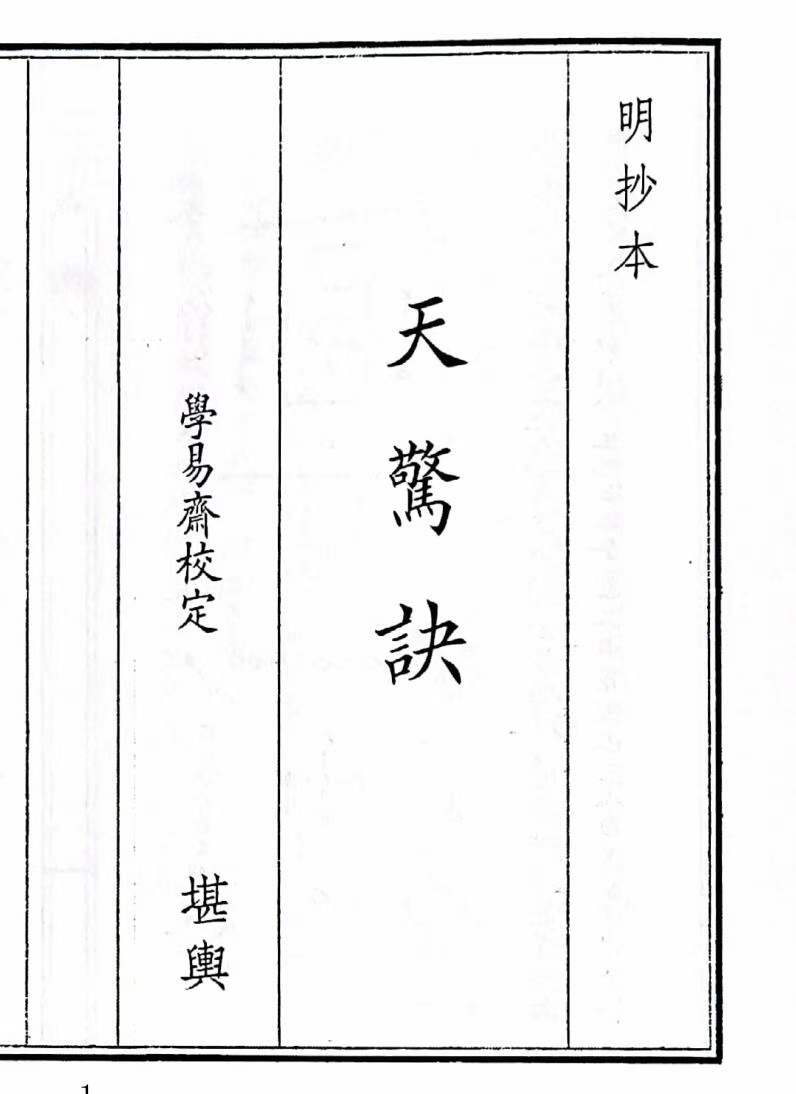 明抄本
天驚訣
學易齋校定
堪輿
1